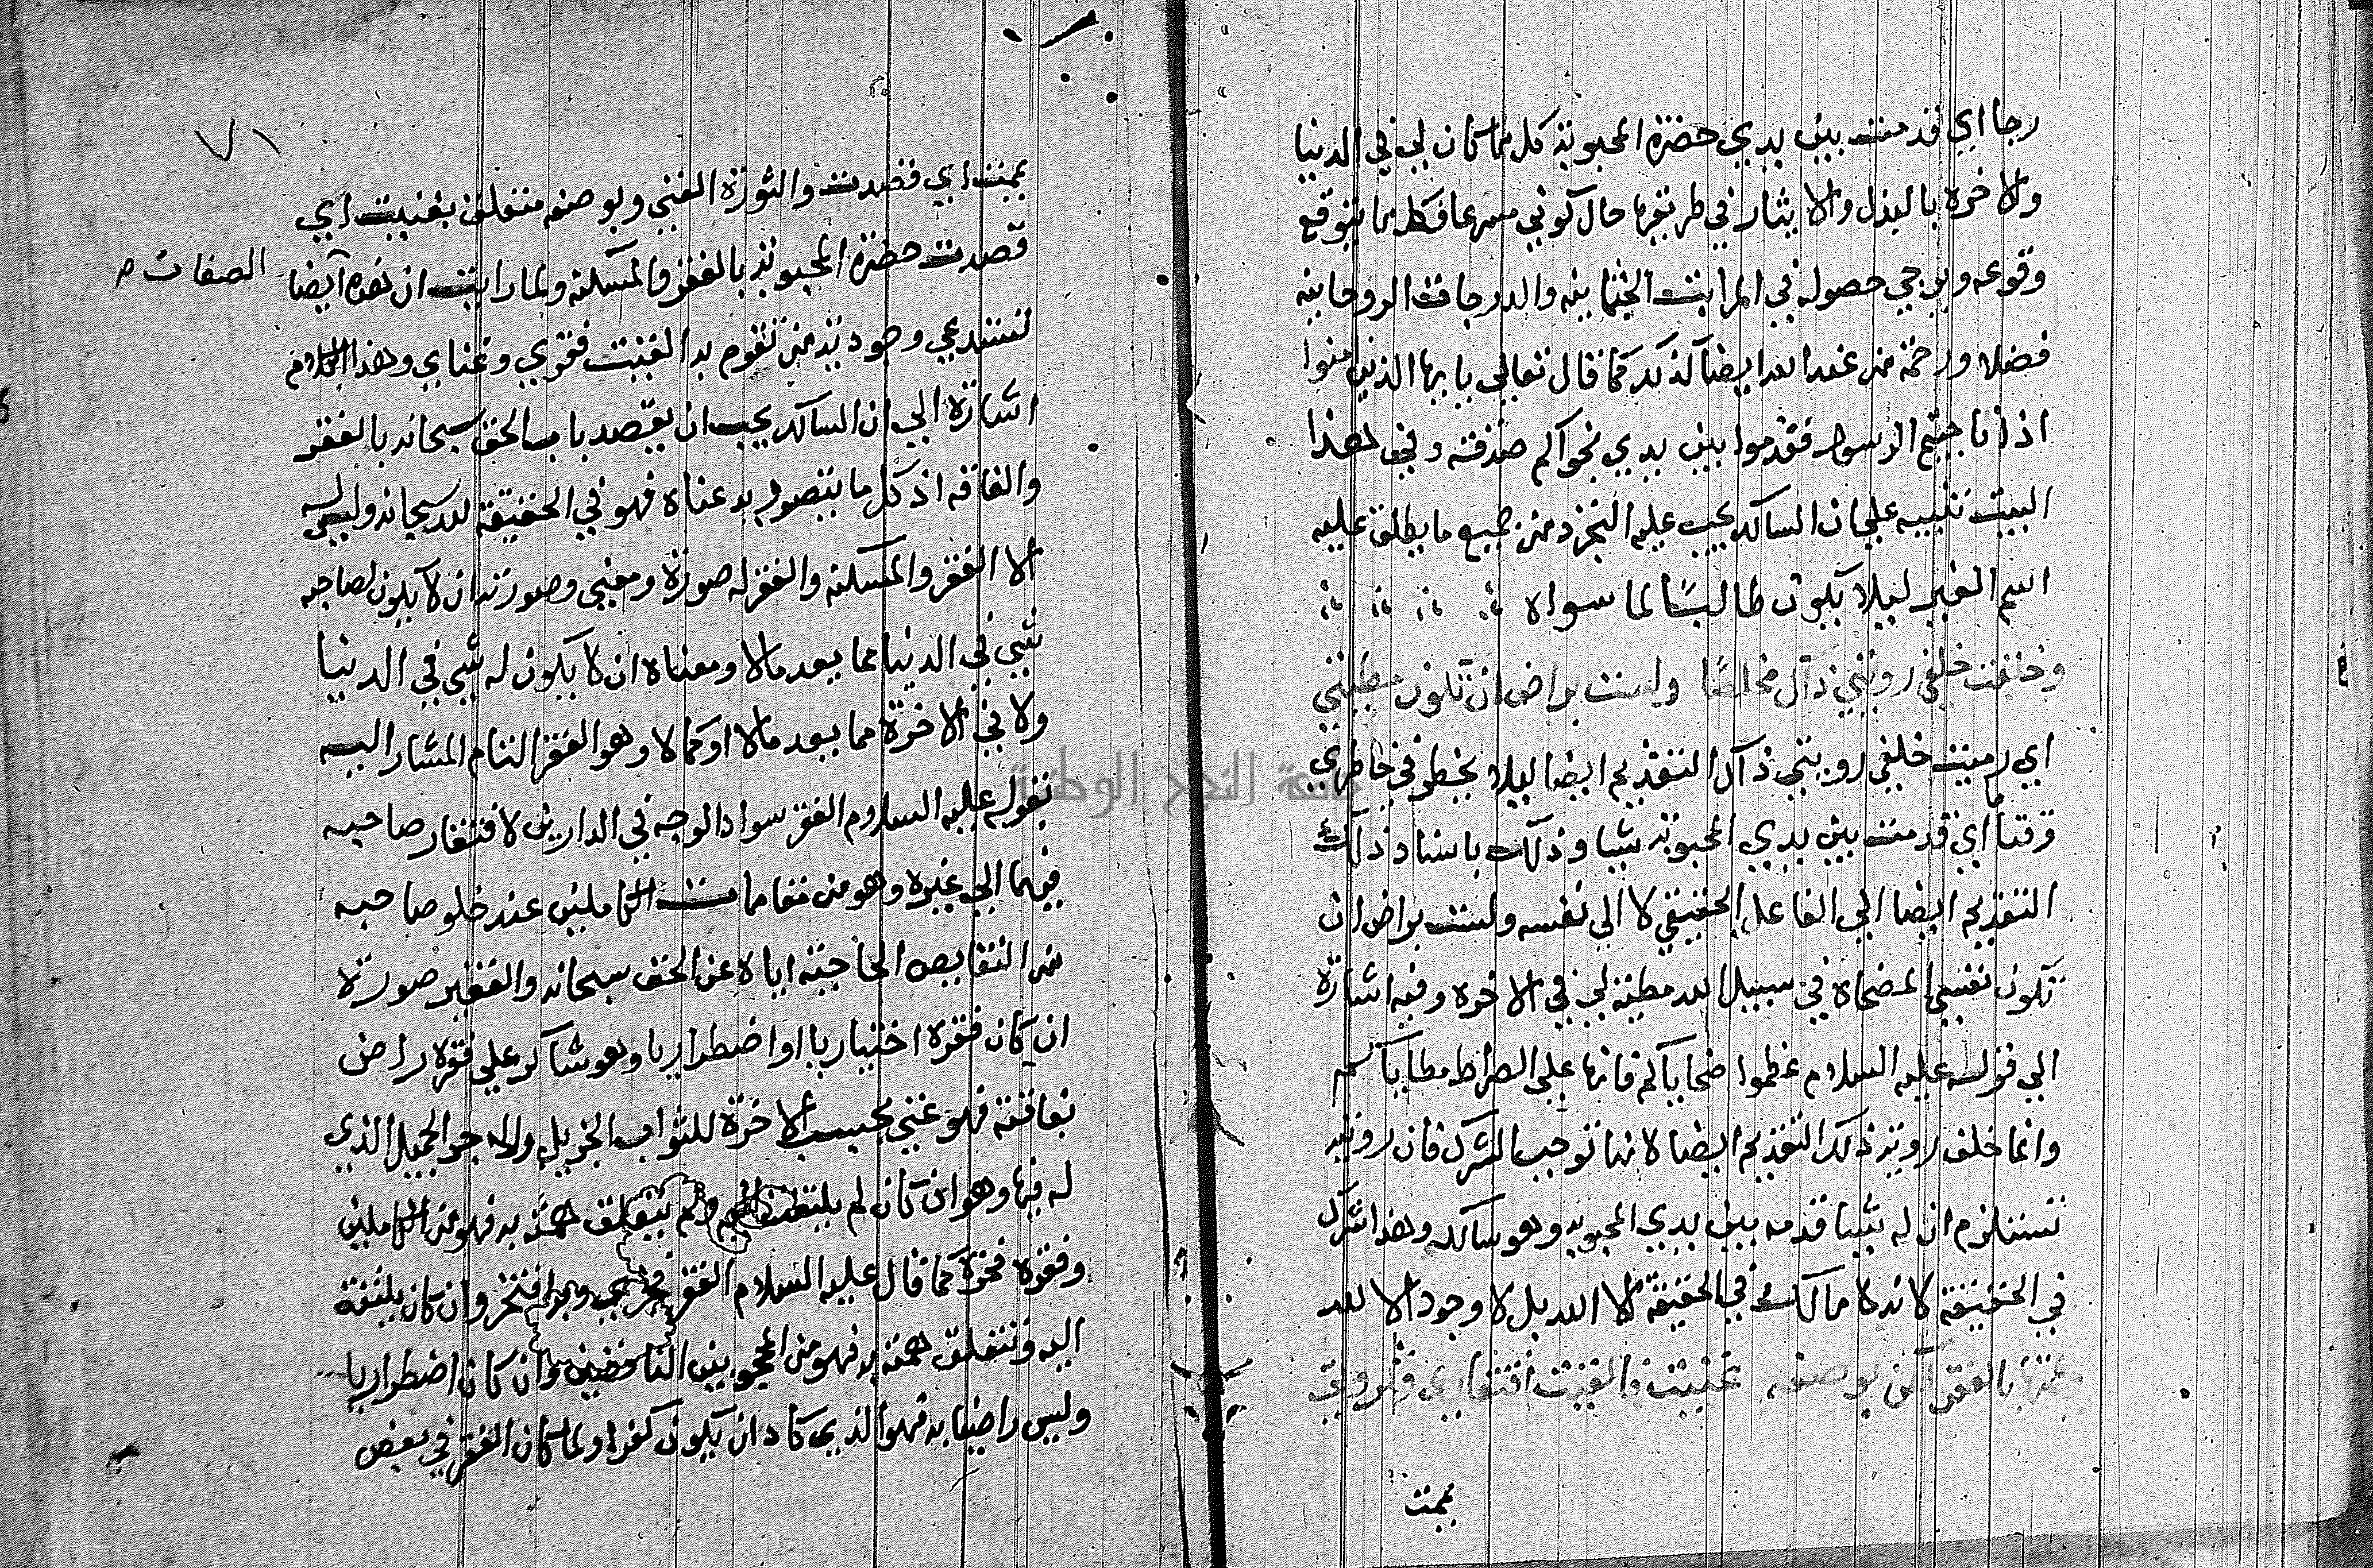 رجا اي قدمت بين يدي حضرة المحبوبة كل ما كان لي في الدنيا
والاخرة بالبذل والايثار في طريقها حال كوني مسرعا فكل ما يتوقع
وقوعه ويرجي حصوله في المراتب الجثمانيه والدرجات الروحانيه
فضلا ورحمة من عند الله ايضا كذلك كما قال تعالي يا يها الذين منوا
اذا ناجيتم الرسول فقدموا بين يدي نجواكم صدقة وفي هذا
البيت تنبيه علي ان السالك يجب عليه التجرد من جميع ما يطلق عليه
اسم الغير ليلا يكون طالبًا لما سواه
وخلفت خلفي رويتي ذاك مخلصًا ولست براض ان تكون مطيتي
اي رميت خلفي رويتي ذاك التقديم ايضا ليلا يخطر في خاطري
وقتا اي قدمت بين يدي المحبوبة شيا وذلك باسناد ذلك
التقديم ايضا الي الفاعل الحقيقي لا الي نفسه ولست براض ان
تكون نفسي المضحاة في سبيل الله مطية لي في الاخرة وفيه اشارة
الي قوله عليه السلام عظموا ضحاياكم فانها علي الصراط مطاياكم
وانما خلف روية ذلك التقديم ايضا لانها توجب الشرك فان رويته
تستلزم ان له شيا قدمه بين يدي المحبوبه وهو سالكه وهذا شرك
في الحقيقة لانه لا مالك في الحقيقة الا الله بل لا وجود الا لله
يممتها بالفقر لكن بوصفه غنيت فالقيت افتقاري وثروتي
يممت
٧١
يممت اي قصدت والثورة الغني وبوصفه متعلق بغنيت اي
قصدت حضرة المحبوبة بالفقر والمسكنه ولما رايت ان هذه ايضا الصفات
تستدعي وجود ية من تقوم به القيت فقري وغناي وهذا الكلام
اشارة الي ان السالك يجب ان يقصد باب الحق سبحانه بالفقر
والفاقه اذ كل ما يتصور به غناه فهو في الحقيقة لله سبحانه وليس له
الا الفقر والمسكنه والفقر له صورة ومعني وصورته ان لا يكون لصاحبه
شي في الدنيا مما يعد مالا ومعناه ان لا يكون له شي في الدنيا
ولا في الاخرة مما يعد مالا او كمالا وهو الفقر التام المشار اليه
بقوله عليه السلام الفقر سواد الوجه في الدارين لافتقار صاحبه
فيهما الي غيره وهو من مقامات الكاملين عند خلو صاحبه
من النقايص الحاجبه اياه عن الحق سبحانه والفقير صورة
ان كان فقره اختياريا او اضطراريا وهو شاكر علي فقره راض
بفاقته فهو غني بحسب الاخرة للثواب الجزيل والاجر الجميل الذي
له فيها وهو ان كان لم يلتفت اليه ولم يتعلق همته به فهو من الكاملين
وفقره فخره كما قال عليه السلام الفقر فخري وبه افتخر وان كان يلتفت
اليه وتتعلق همته به فهو من المحجوبين الناقصين وان كان اضطراريا
وليس راضيا به فهو الذي كاد ان يكون كفرا ولما كان الفقر في بعض